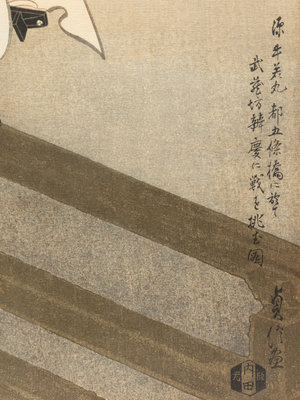 源牛若丸都五條橋に於て
武蔵坊辨慶に戦を挑む図
貞信画
内田